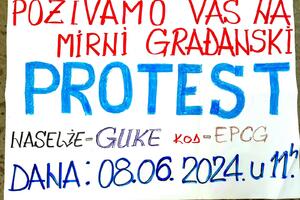 POZIVAMO VAS NA
MIRNI GRAĐANSKI
PROTEST
NASELJE-GUKE код-EPCG
DANA: 08.06.2024. u 11h